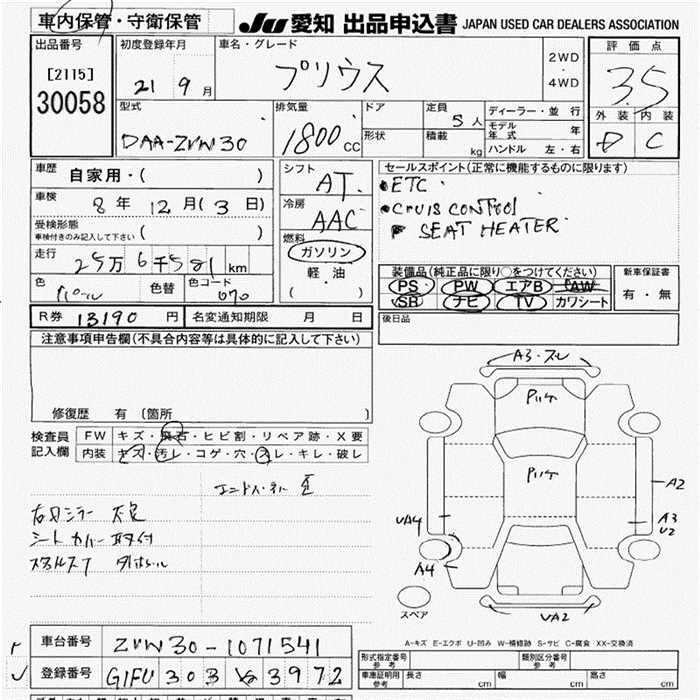 車内保管・守衛保管
JU 愛知 出品申込書 JAPAN USED CAR DEALERS ASSOCIATION
出品番号
[2115]
30058
初度登録年月
21 9 月
車名・グレード
プリウス
2WD
・
4WD
評価点
3.5
外装 内装
D C
型式
DAA-ZVW30
排気量
1800 CC
ドア
形状
定員
5 人
積載
kg
ディーラー・並 行
モデル年式 年
ハンドル 左・右
車歴
自家用・( )
車検
8 年 12 月 ( 3 日)
受検形態
車検付きのみ記入して下さい ( )
走行
25万 6千581 km
色
パール
色替
色コード
070
シフト
AT
冷房
AAC
燃料
ガソリン
軽・油
( )
セールスポイント(正常に機能するものに限ります)
ETC
CRUIS CONTROL
SEAT HEATER
装備品(純正品に限り○をつけてください)
PS PW エアB AW
SR ナビ TV カワシート
新車保証書
有・無
R券 13190 円
名変通知期限 月 日
後日品
注意事項申告欄(不具合内容等は具体的に記入して下さい)
修復歴 有 (箇所 )
検査員
記入欄
FW キズ・飛石・ヒビ割・リペア跡・X要
内装 キズ・汚レ・コゲ・穴・スレ・キレ・破レ
右ミラー 欠品
シートカバー取付
A3・スレ
Pハゲ
Pハゲ
A2
A3
U2
UA4
A4
UA2
スペア
A-キズ E-エクボ U-凹み W-補修跡 S-サビ C-腐食 XX-交換済
車台番号 ZVW30-1071541
登録番号 GIFU 303 3972
形式指定番号
参考
類別区分番号
参考
車庫証明用
参考
長さ cm 幅 cm 高さ cm